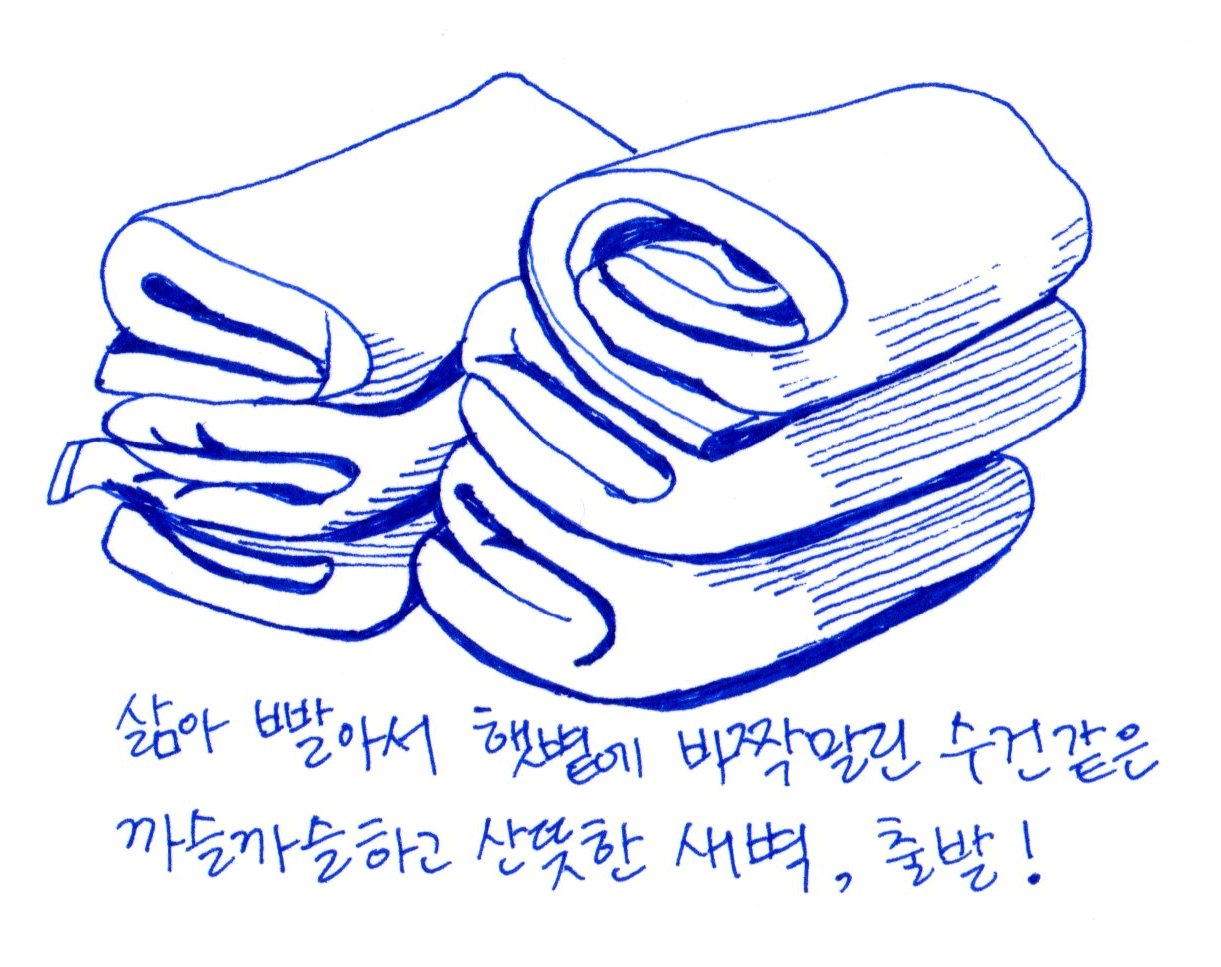 삶아 빨아서 햇볕에 바짝말린 수건같은
까슬까슬하고 산뜻한 새벽, 출발!